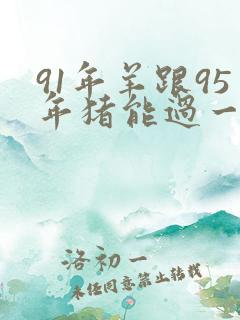 91年羊跟95
年猪能过一
洛初一
未经同意禁止转载